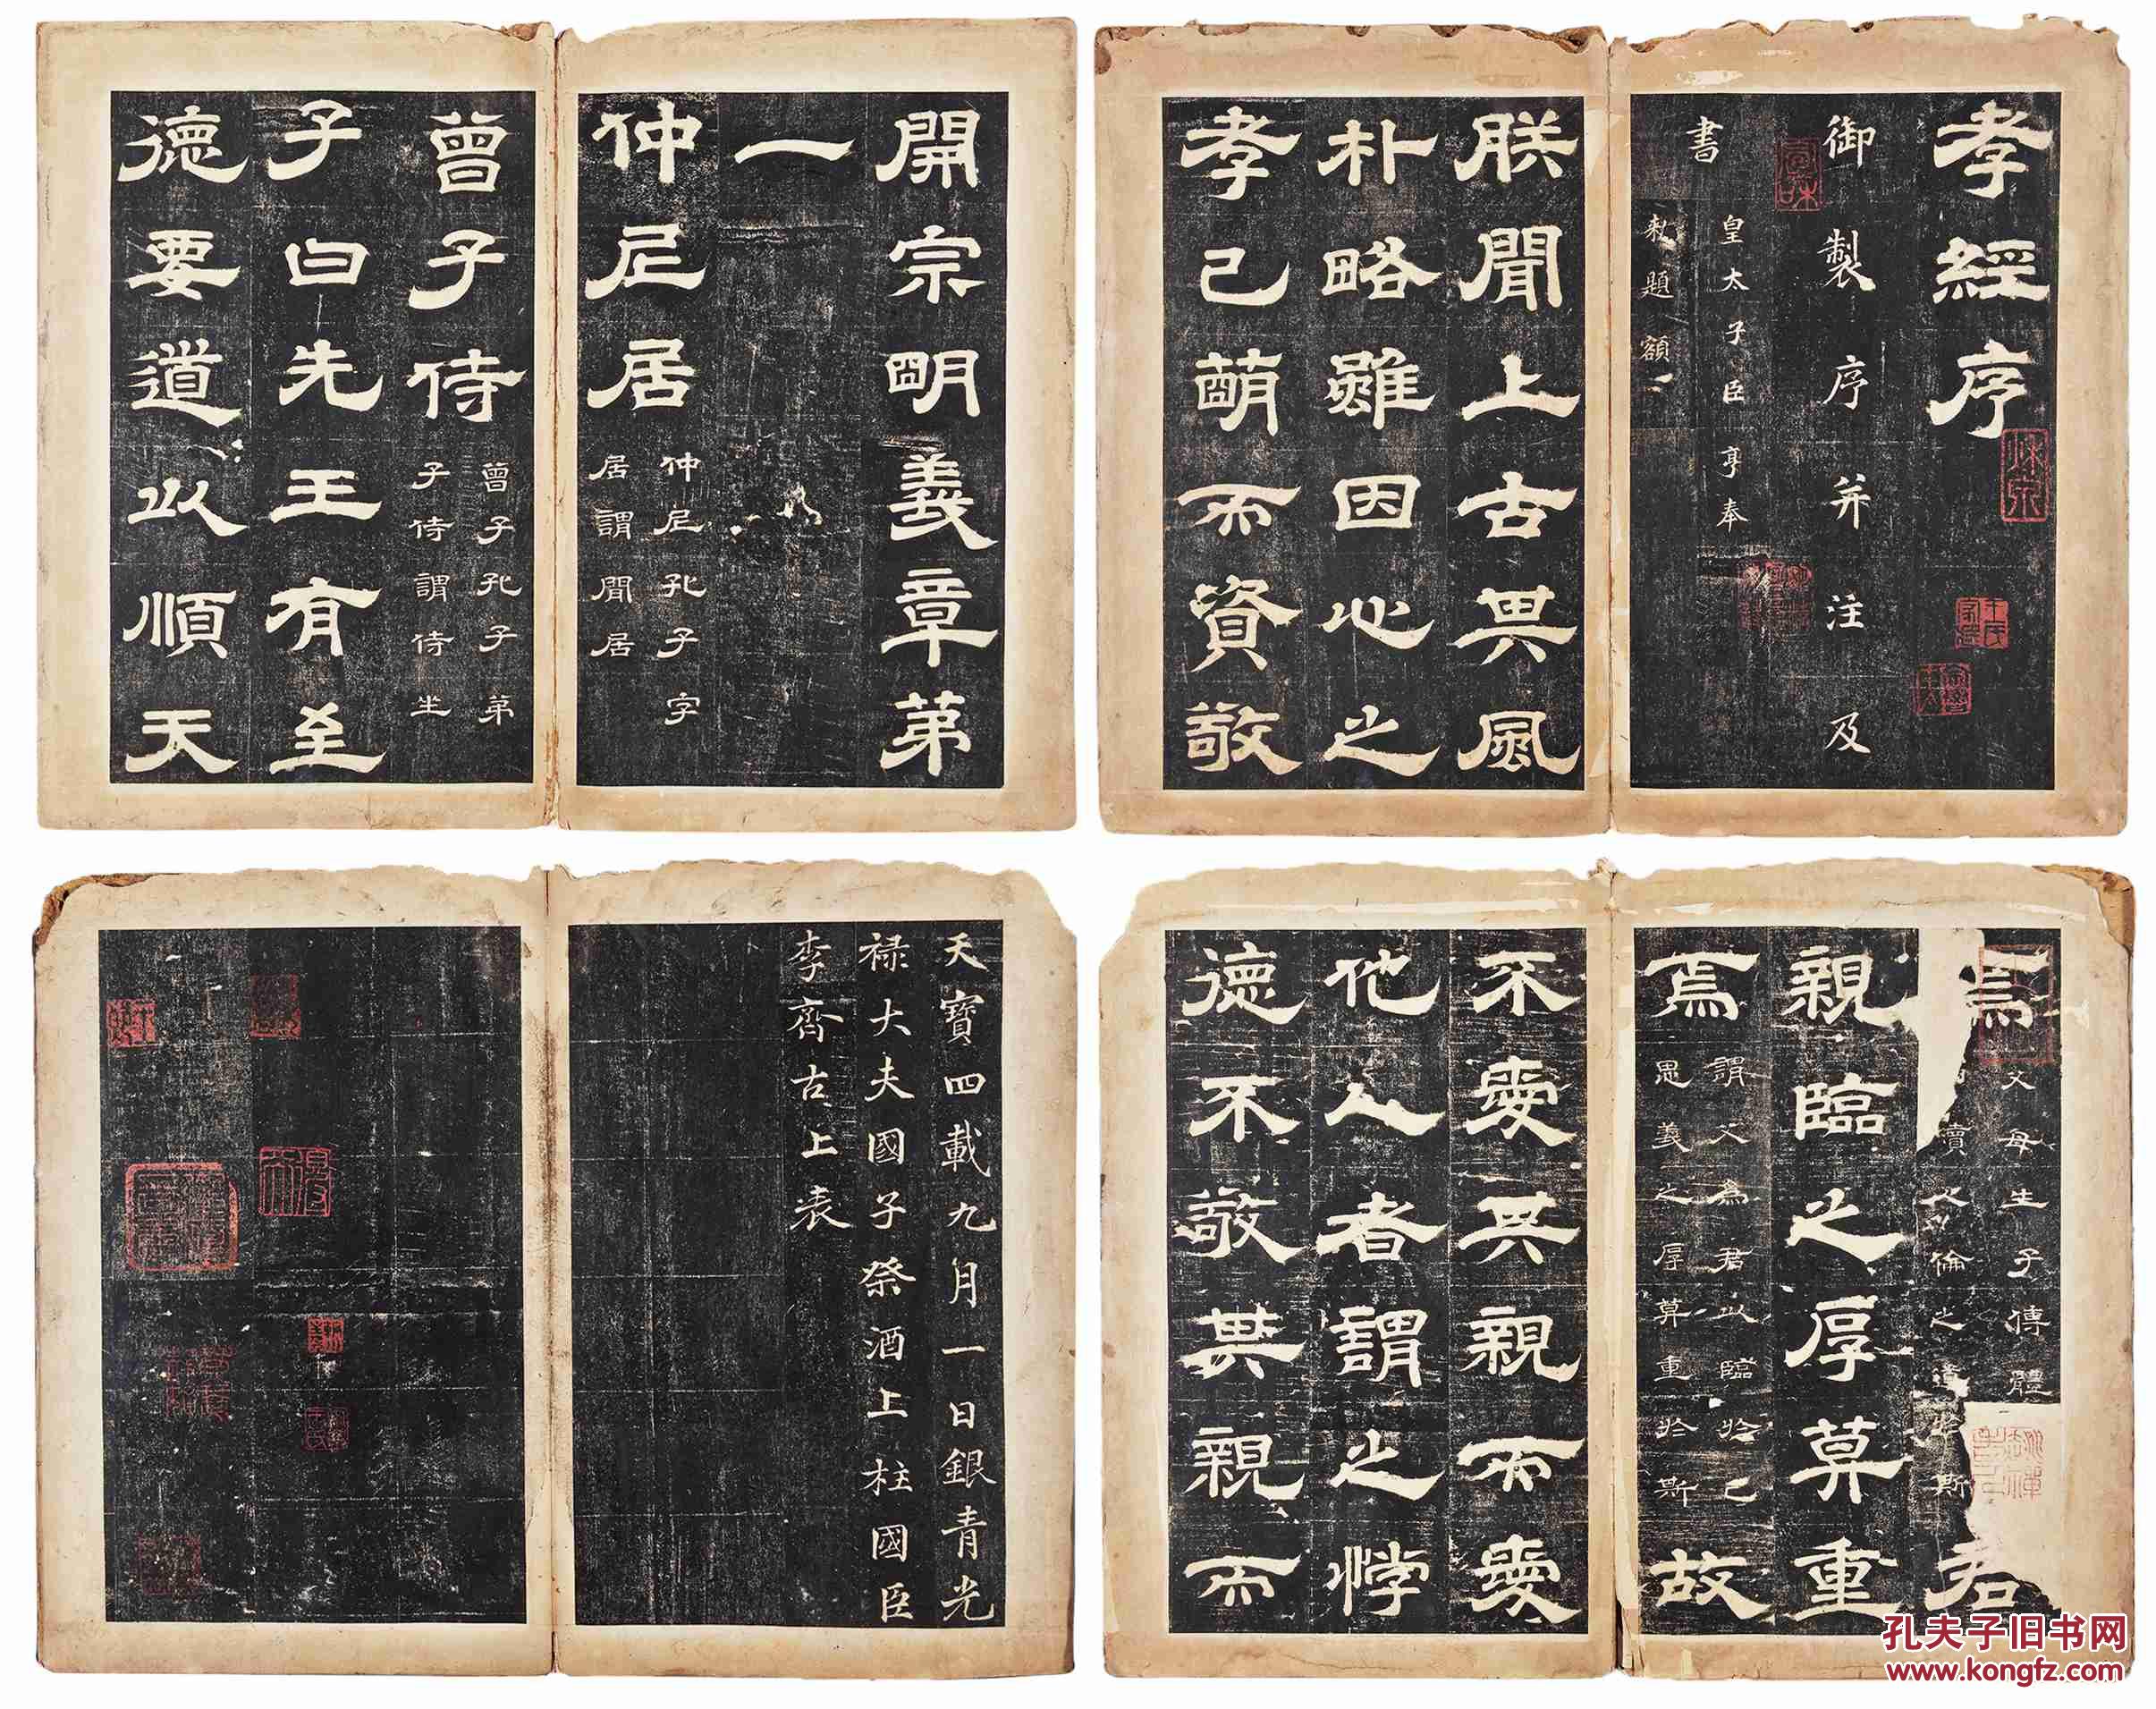 孝經序
御製序并注及
書
皇太子臣亨奉
敕題額
朕聞上古其風
朴略雖因心之
孝已萌而資敬
開宗明義章第
一
仲尼居
仲尼孔子字
居謂閒居
曾子侍
曾子孔子弟
子侍謂侍坐
子曰先王有至
德要道以順天
焉
父母生子傳體
續人倫之道於斯
君
親臨之厚莫重
焉
謂父為君以臨於己
恩義之厚莫重於斯
故
不愛其親而愛
他人者謂之悖
德不敬其親而
天寶四載九月一日銀青光
祿大夫國子祭酒上柱國臣
李齊古上表
孔夫子旧书网
www.kongfz.com